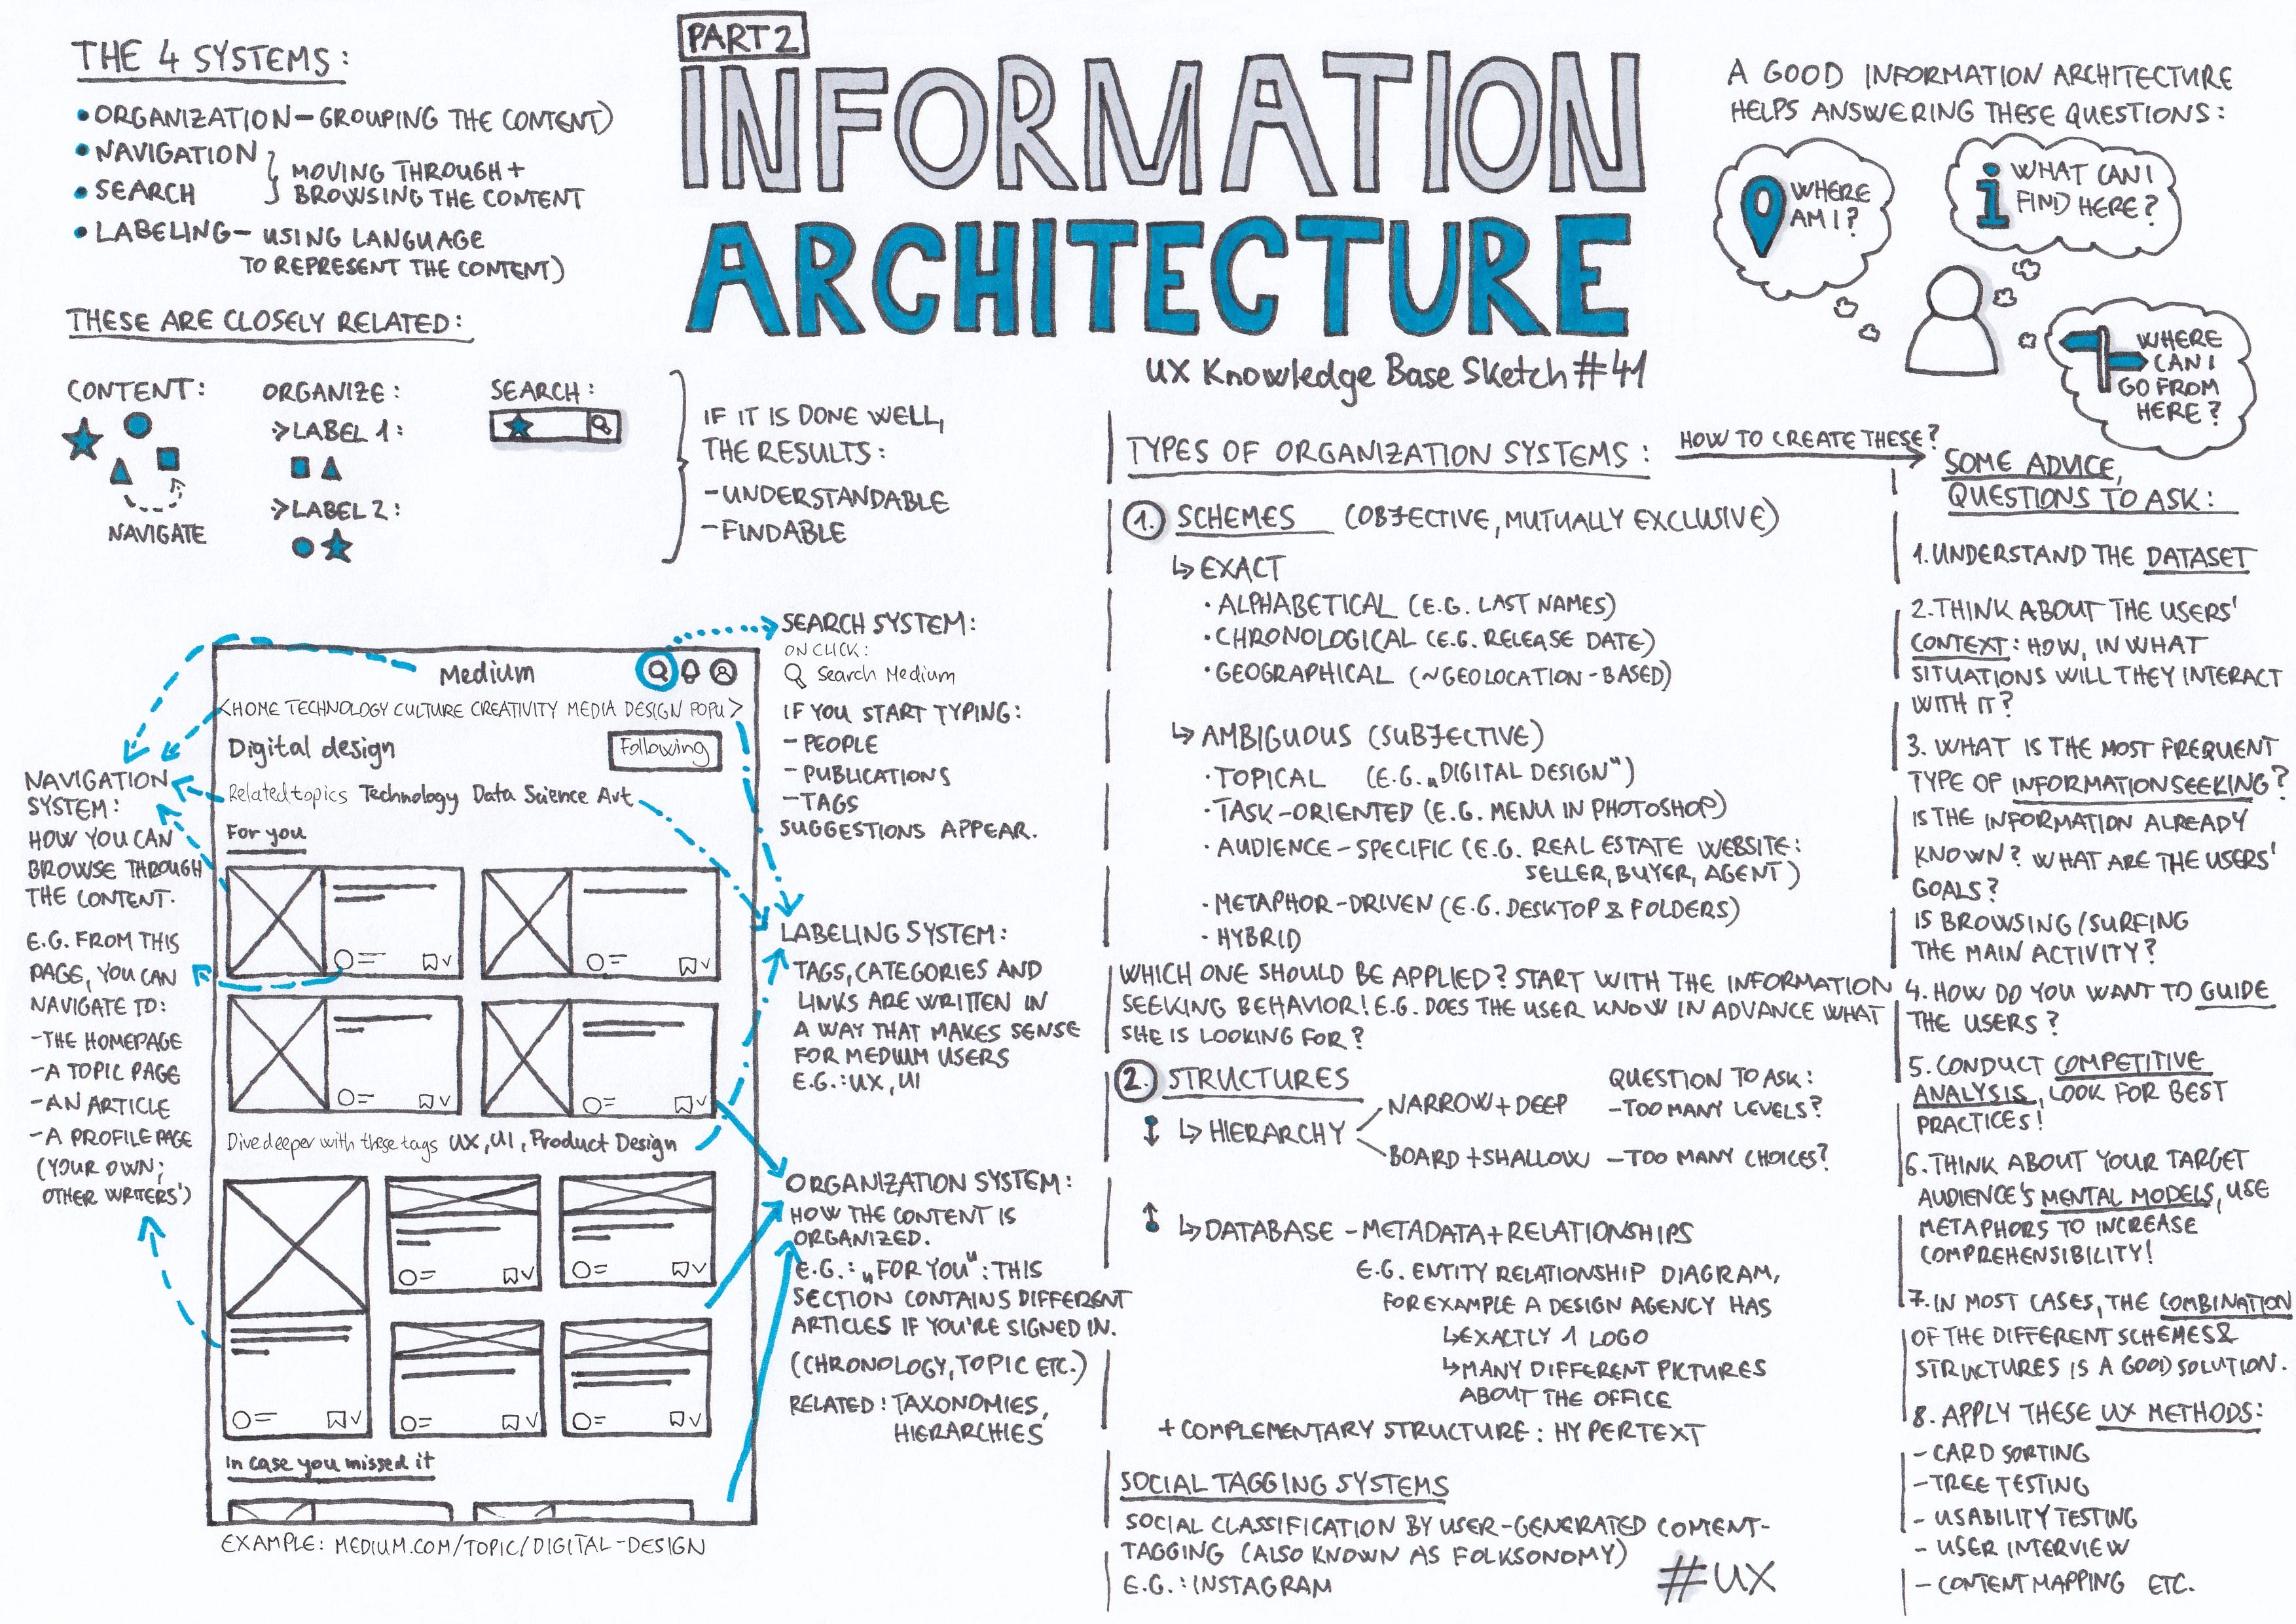 THE 4 SYSTEMS:
• ORGANIZATION – GROUPING THE CONTENT)
• NAVIGATION
• SEARCH
MOVING THROUGH +
BROWSING THE CONTENT
• LABELING – USING LANGUAGE
TO REPRESENT THE CONTENT)
THESE ARE CLOSELY RELATED:
CONTENT:
NAVIGATE
ORGANIZE:
>LABEL 1:
>LABEL 2:
SEARCH:
IF IT IS DONE WELL,
THE RESULTS:
-UNDERSTANDABLE
-FINDABLE
PART 2
INFORMATION
ARCHITECTURE
UX Knowledge Base Sketch #41
A GOOD INFORMATION ARCHITECTURE
HELPS ANSWERING THESE QUESTIONS:
WHERE
AM I?
WHAT CAN I
FIND HERE?
WHERE
CAN I
GO FROM
HERE?
NAVIGATION
SYSTEM:
HOW YOU CAN
BROWSE THROUGH
THE CONTENT.
E.G. FROM THIS
PAGE, YOU CAN
NAVIGATE TO:
-THE HOMEPAGE
-A TOPIC PAGE
-AN ARTICLE
-A PROFILE PAGE
(YOUR OWN;
OTHER WRITERS')
Medium
<HOME TECHNOLOGY CULTURE CREATIVITY MEDIA DESIGN POPU>
Digital design
Following
Related topics Technology Data Science Art
For you
Dive deeper with these tags UX, UI, Product Design
In case you missed it
EXAMPLE: MEDIUM.COM/TOPIC/DIGITAL-DESIGN
SEARCH SYSTEM:
ON CLICK:
Search Medium
IF YOU START TYPING:
- PEOPLE
- PUBLICATIONS
- TAGS
SUGGESTIONS APPEAR.
LABELING SYSTEM:
TAGS, CATEGORIES AND
LINKS ARE WRITTEN IN
A WAY THAT MAKES SENSE
FOR MEDIUM USERS
E.G.: UX, UI
ORGANIZATION SYSTEM:
HOW THE CONTENT IS
ORGANIZED.
E.G.: „FOR YOU": THIS
SECTION CONTAINS DIFFERENT
ARTICLES IF YOU'RE SIGNED IN.
(CHRONOLOGY, TOPIC ETC.)
RELATED: TAXONOMIES,
HIERARCHIES
TYPES OF ORGANIZATION SYSTEMS:
HOW TO CREATE THESE?
1. SCHEMES (OBJECTIVE, MUTUALLY EXCLUSIVE)
↳ EXACT
• ALPHABETICAL (E.G. LAST NAMES)
• CHRONOLOGICAL (E.G. RELEASE DATE)
• GEOGRAPHICAL (~GEOLOCATION-BASED)
↳ AMBIGUOUS (SUBJECTIVE)
• TOPICAL (E.G. „DIGITAL DESIGN")
• TASK-ORIENTED (E.G. MENU IN PHOTOSHOP)
• AUDIENCE-SPECIFIC (E.G. REAL ESTATE WEBSITE:
SELLER, BUYER, AGENT)
• METAPHOR-DRIVEN (E.G. DESKTOP & FOLDERS)
• HYBRID
WHICH ONE SHOULD BE APPLIED? START WITH THE INFORMATION
SEEKING BEHAVIOR! E.G. DOES THE USER KNOW IN ADVANCE WHAT
SHE IS LOOKING FOR?
2. STRUCTURES
QUESTION TO ASK:
↳ HIERARCHY
NARROW + DEEP - TOO MANY LEVELS?
BOARD + SHALLOW - TOO MANY CHOICES?
↳ DATABASE - METADATA + RELATIONSHIPS
E.G. ENTITY RELATIONSHIP DIAGRAM,
FOR EXAMPLE A DESIGN AGENCY HAS
↳ EXACTLY 1 LOGO
↳ MANY DIFFERENT PICTURES
ABOUT THE OFFICE
+ COMPLEMENTARY STRUCTURE: HYPERTEXT
SOCIAL TAGGING SYSTEMS
SOCIAL CLASSIFICATION BY USER-GENERATED CONTENT-
TAGGING (ALSO KNOWN AS FOLKSONOMY)
E.G.: INSTAGRAM
#UX
SOME ADVICE,
QUESTIONS TO ASK:
1. UNDERSTAND THE DATASET
2. THINK ABOUT THE USERS'
CONTEXT: HOW, IN WHAT
SITUATIONS WILL THEY INTERACT
WITH IT?
3. WHAT IS THE MOST FREQUENT
TYPE OF INFORMATION SEEKING?
IS THE INFORMATION ALREADY
KNOWN? WHAT ARE THE USERS'
GOALS?
IS BROWSING/SURFING
THE MAIN ACTIVITY?
4. HOW DO YOU WANT TO GUIDE
THE USERS?
5. CONDUCT COMPETITIVE
ANALYSIS, LOOK FOR BEST
PRACTICES!
6. THINK ABOUT YOUR TARGET
AUDIENCE'S MENTAL MODELS, USE
METAPHORS TO INCREASE
COMPREHENSIBILITY!
7. IN MOST CASES, THE COMBINATION
OF THE DIFFERENT SCHEMES &
STRUCTURES IS A GOOD SOLUTION.
8. APPLY THESE UX METHODS:
- CARD SORTING
- TREE TESTING
- USABILITY TESTING
- USER INTERVIEW
- CONTENT MAPPING ETC.